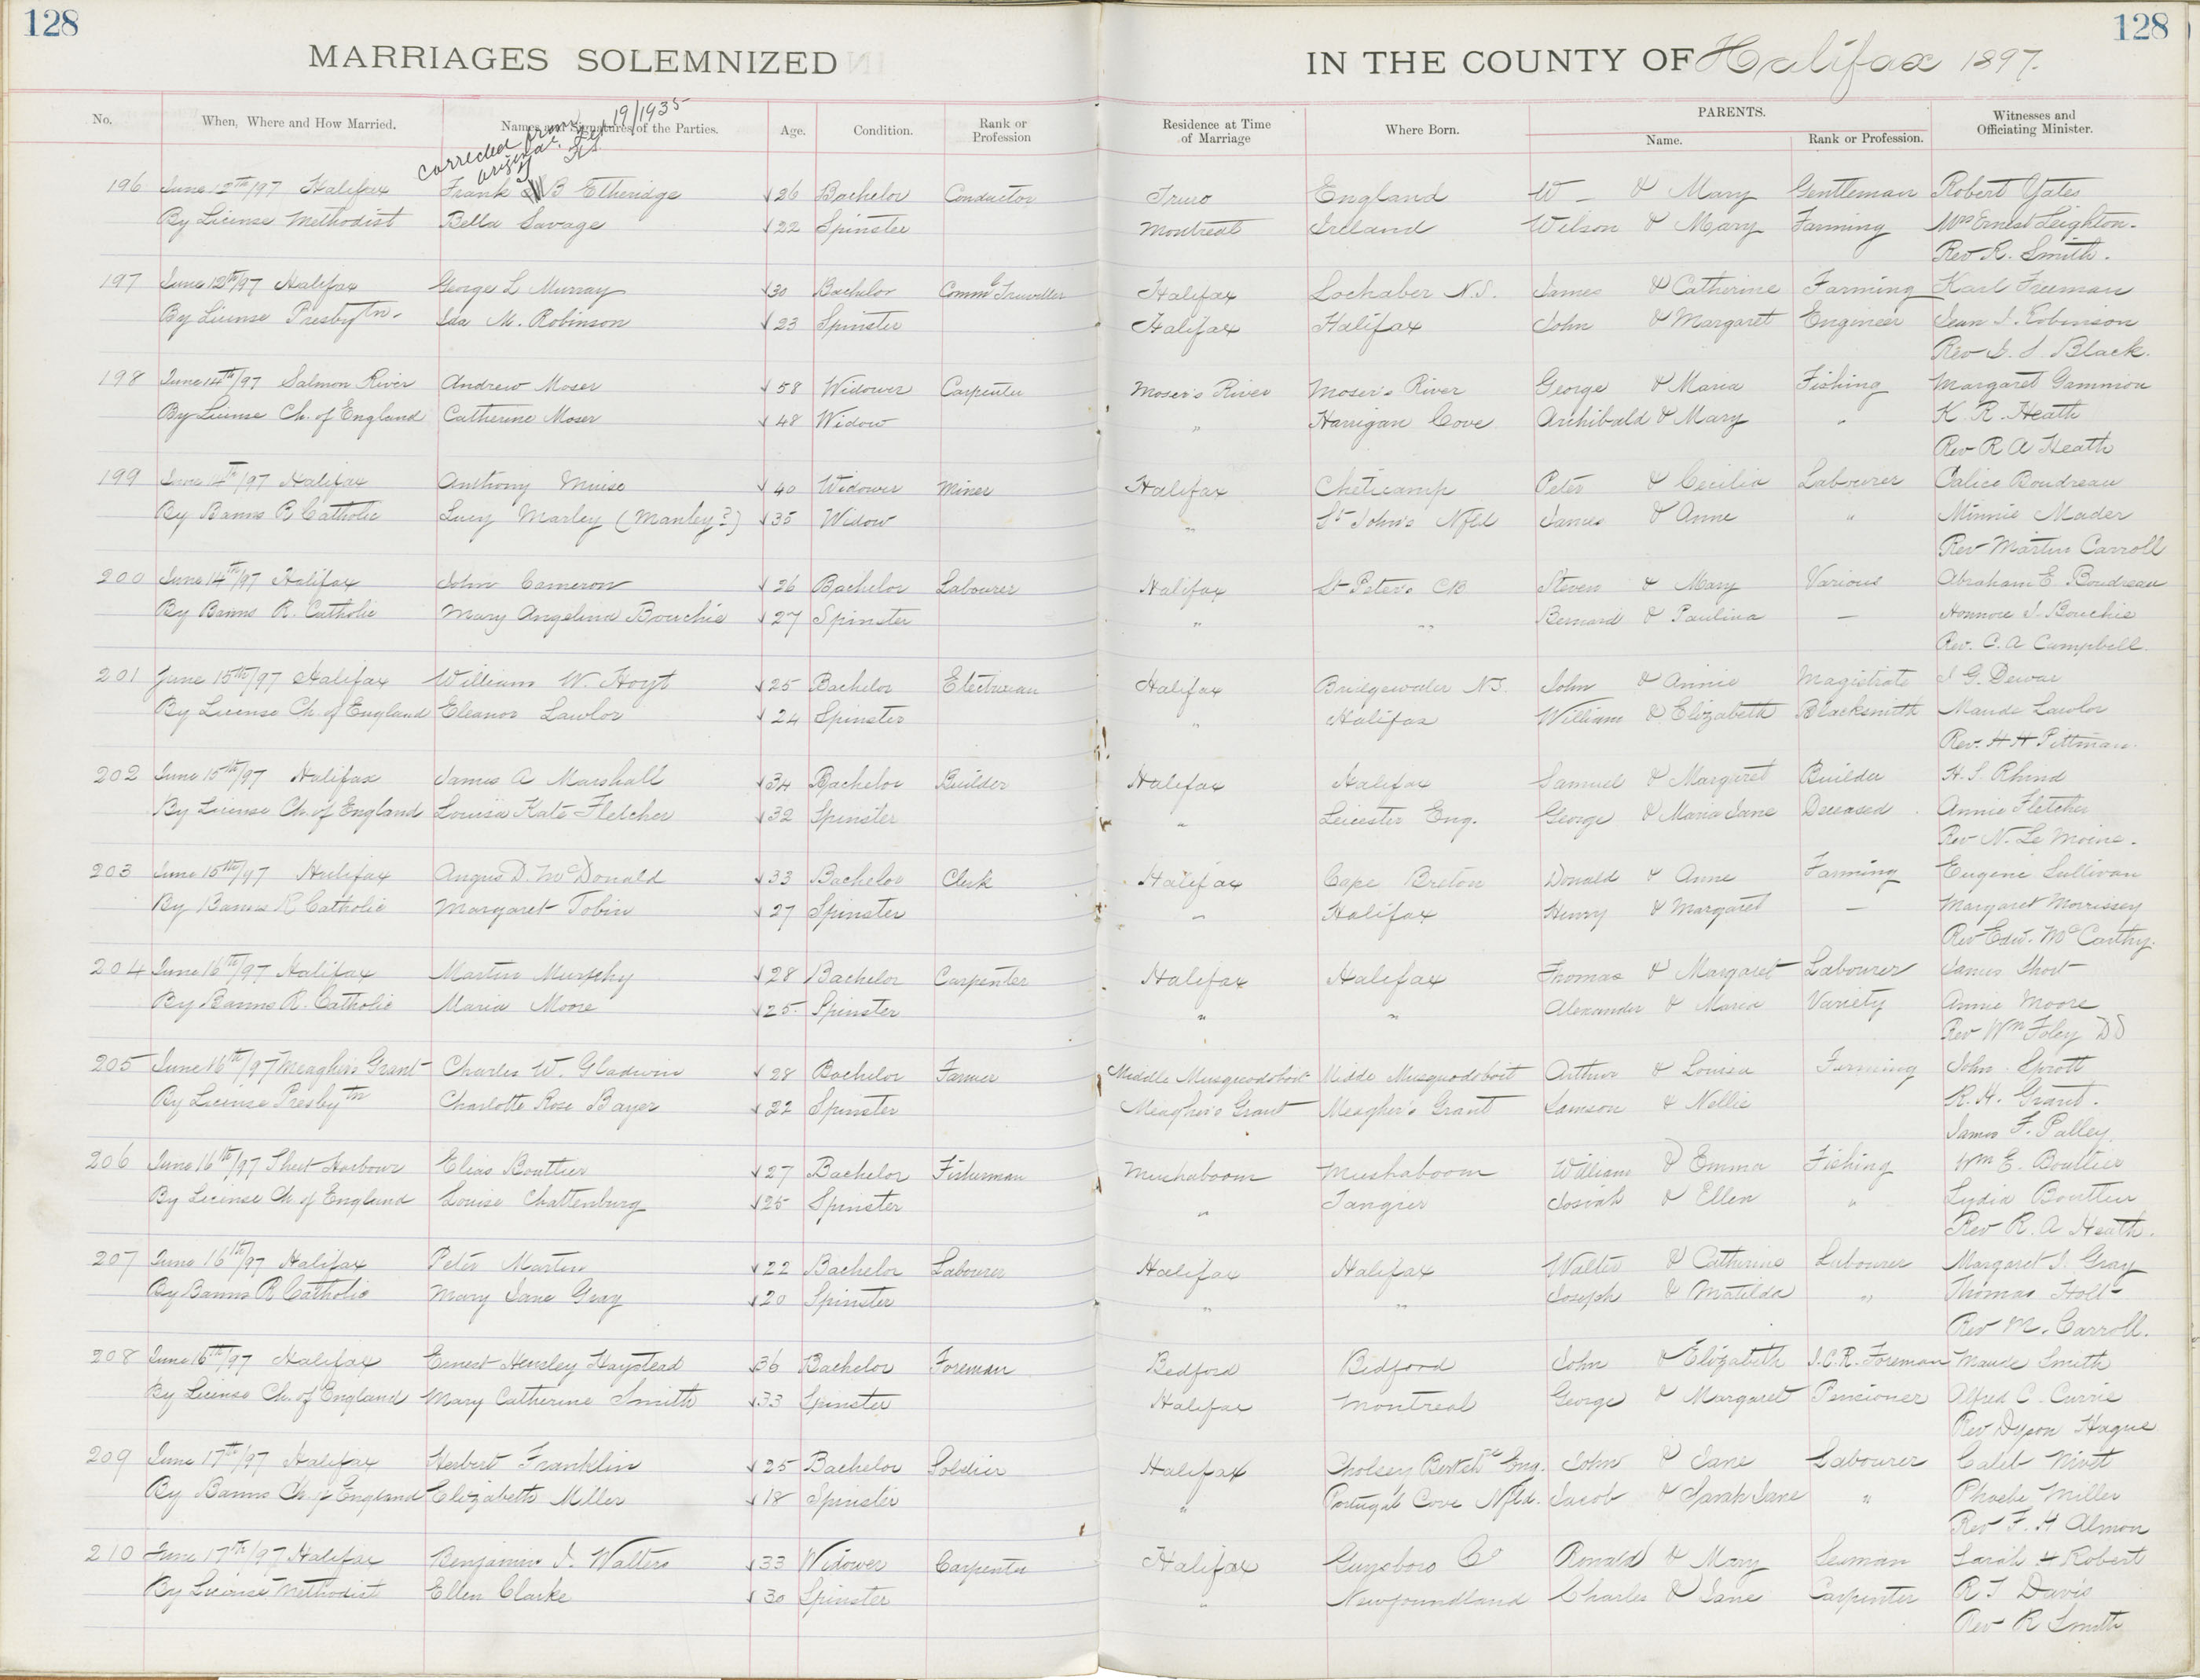 128 128
MARRIAGES SOLEMNIZED IN THE COUNTY OF Halifax 1897.
No. When, Where and How Married. Names and Signatures of the Parties. Age. Condition. Rank or Profession Residence at Time of Marriage Where Born. PARENTS. Name. Rank or Profession. Witnesses and Officiating Minister.
corrected from original 19/1935
196 June 12th/97 Halifax Frank B Etheridge 26 Bachelor Conductor Truro England W — & Mary Gentleman Robert Yates
By License Methodist Bella Savage 22 Spinster Montreal Ireland Wilson & Mary Farming Mrs Ernest Leighton.
Rev R. Smith.
197 June 12th/97 Halifax George L Murray 30 Bachelor Commg Traveller Halifax Lochaber N.S. James & Catherine Farming Karl Freeman
By License Presbytn. Ida M. Robinson 23 Spinster Halifax Halifax John & Margaret Engineer Jean I. Robinson
Rev Black.
198 June 14th/97 Salmon River Andrew Moser 58 Widower Carpenter Moser's River Moser's River George & Maria Fishing Margaret Gammion
By License Ch. of England Catherine Moser 48 Widow " Harrigan Cove Archibald & Mary " K. R. Heath
Rev R A Heath
199 June 14th/97 Halifax Anthony Muise 40 Widower Miner Halifax Cheticamp Peter & Cecilia Labourer Calice Boudreau
By Banns R Catholic Lucy Marley (Manley?) 35 Widow " St John's Nfld James & Anne " Minnie Mader
Rev Martin Carroll
200 June 14th/97 Halifax John Cameron 26 Bachelor Labourer Halifax St Peter's CB Steven & Mary Various Abraham E. Boudreau
By Banns R. Catholic Mary Angelina Bouchie 27 Spinster " " Bernard & Paulina — Honnore J. Bouchie
Rev. C. A Campbell.
201 June 15th/97 Halifax William W. Hoyt 25 Bachelor Electrician Halifax Bridgewater N.S. John & Annie Magistrate J G. Dewar
By License Ch. of England Eleanor Lawlor 24 Spinster " Halifax William & Elizabeth Blacksmith Maude Lawlor
Rev. H H Pittman.
202 June 15th/97 Halifax James A Marshall 34 Bachelor Builder Halifax Halifax Samuel & Margaret Builder H. S. Rhind
By License Ch. of England Louisa Kate Fletcher 32 Spinster " Leicester Eng. George & Maria Jane Deceased Annie Fletcher
Rev N. Le Moine.
203 June 15th/97 Halifax Angus D. McDonald 33 Bachelor Clerk Halifax Cape Breton Donald & Anne Farming Eugene Sullivan
By Banns R Catholic Margaret Tobin 27 Spinster " Halifax Henry & Margaret — Margaret Morrissey
Rev Edw. McCarthy.
204 June 16th/97 Halifax Martin Murphy 28 Bachelor Carpenter Halifax Halifax Thomas & Margaret Labourer James Short
By Banns R. Catholic Maria Moore 25 Spinster " " Alexander & Maria Variety Annie Moore
Rev Wm Foley DD
205 June 16th/97 Meagher's Grant Charles W. Gladwin 28 Bachelor Farmer Middle Musquodoboit Midde Musquodoboit Arthur & Louisa Farming John Sprott
By License Presbytn Charlotte Rose Bayer 22 Spinster Meagher's Grant Meagher's Grant Samson & Nellie R. H. Grant.
James F. Palley.
206 June 16th/97 Sheet Harbour Elias Bouttier 27 Bachelor Fisherman Mushaboom Mushaboom William & Emma Fishing Wm E. Bouttier
By License Ch. of England Louise Chattenburg 25 Spinster " Tangier Josiah & Ellen " Lydia Bouttier
Rev R. A Heath.
207 June 16th/97 Halifax Peter Martin 22 Bachelor Labourer Halifax Halifax Walter & Catherine Labourer Margaret J. Gray
By Banns R Catholic Mary Jane Gray 20 Spinster " " Joseph & Matilda " Thomas Holt
Rev M. Carroll.
208 June 16th/97 Halifax Ernest Hensley Haystead 36 Bachelor Foreman Bedford Bedford John & Elizabeth I.C.R. Foreman Maude Smith
By License Ch. of England Mary Catherine Smith 33 Spinster Halifax Montreal George & Margaret Pensioner Alfred C. Currie
Rev Dyson Hague
209 June 17th/97 Halifax Herbert Franklin 25 Bachelor Soldier Halifax Cholsey Berkshre Eng. John & Jane Labourer Caleb
By Banns Ch. of England Elizabeth Miller 18 Spinster " Portugal Cove Nfld. Jacob & Sarah Jane " Phoebe Miller
Rev F. H Almon
210 June 17th/97 Halifax Benjamin J. Walters 33 Widower Carpenter Halifax Guysboro Co Ronald & Mary Seaman Sarah H Robert
By License Methodist Ellen Clarke 30 Spinster " Newfoundland Charles & Jane Carpenter R J Davis
Rev R Smith